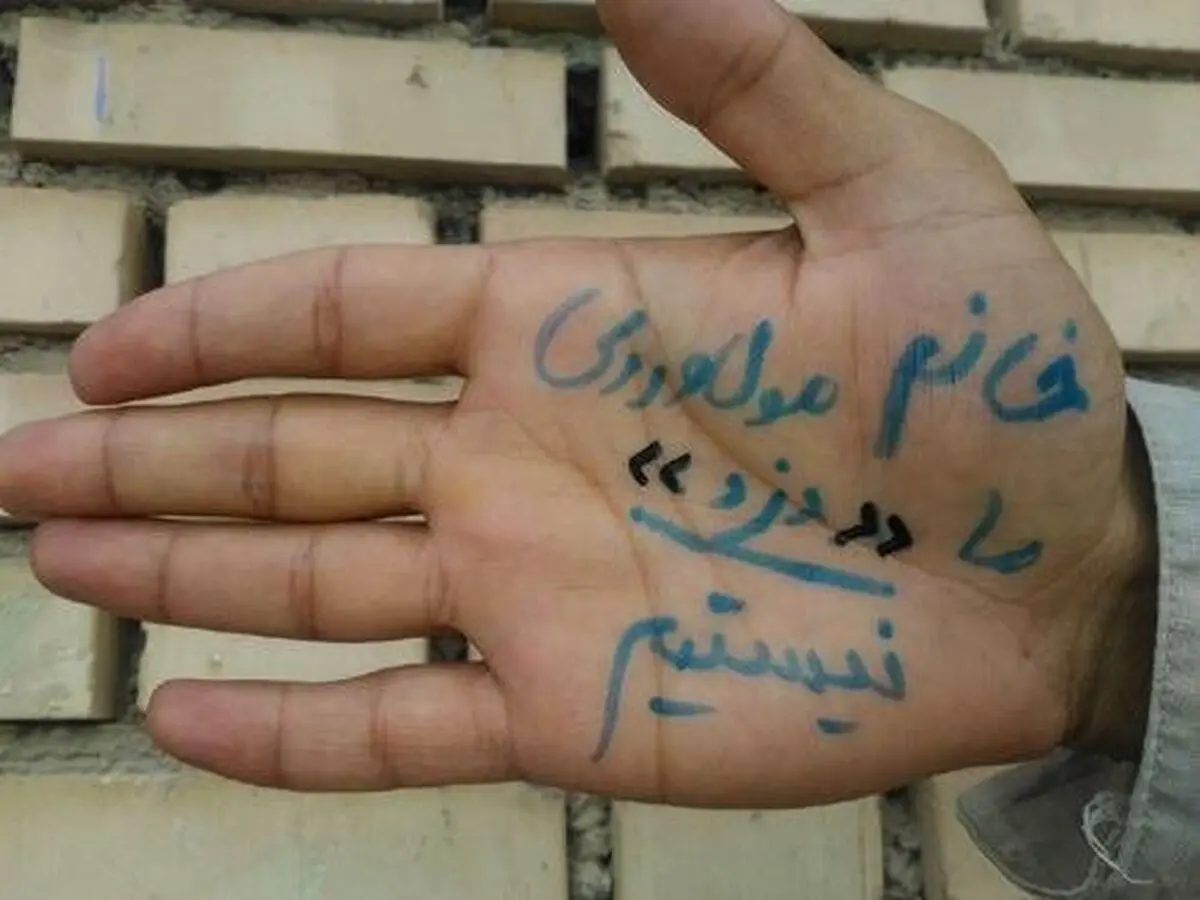 خانم مولاوردی
ما «دزد»
نیستیم